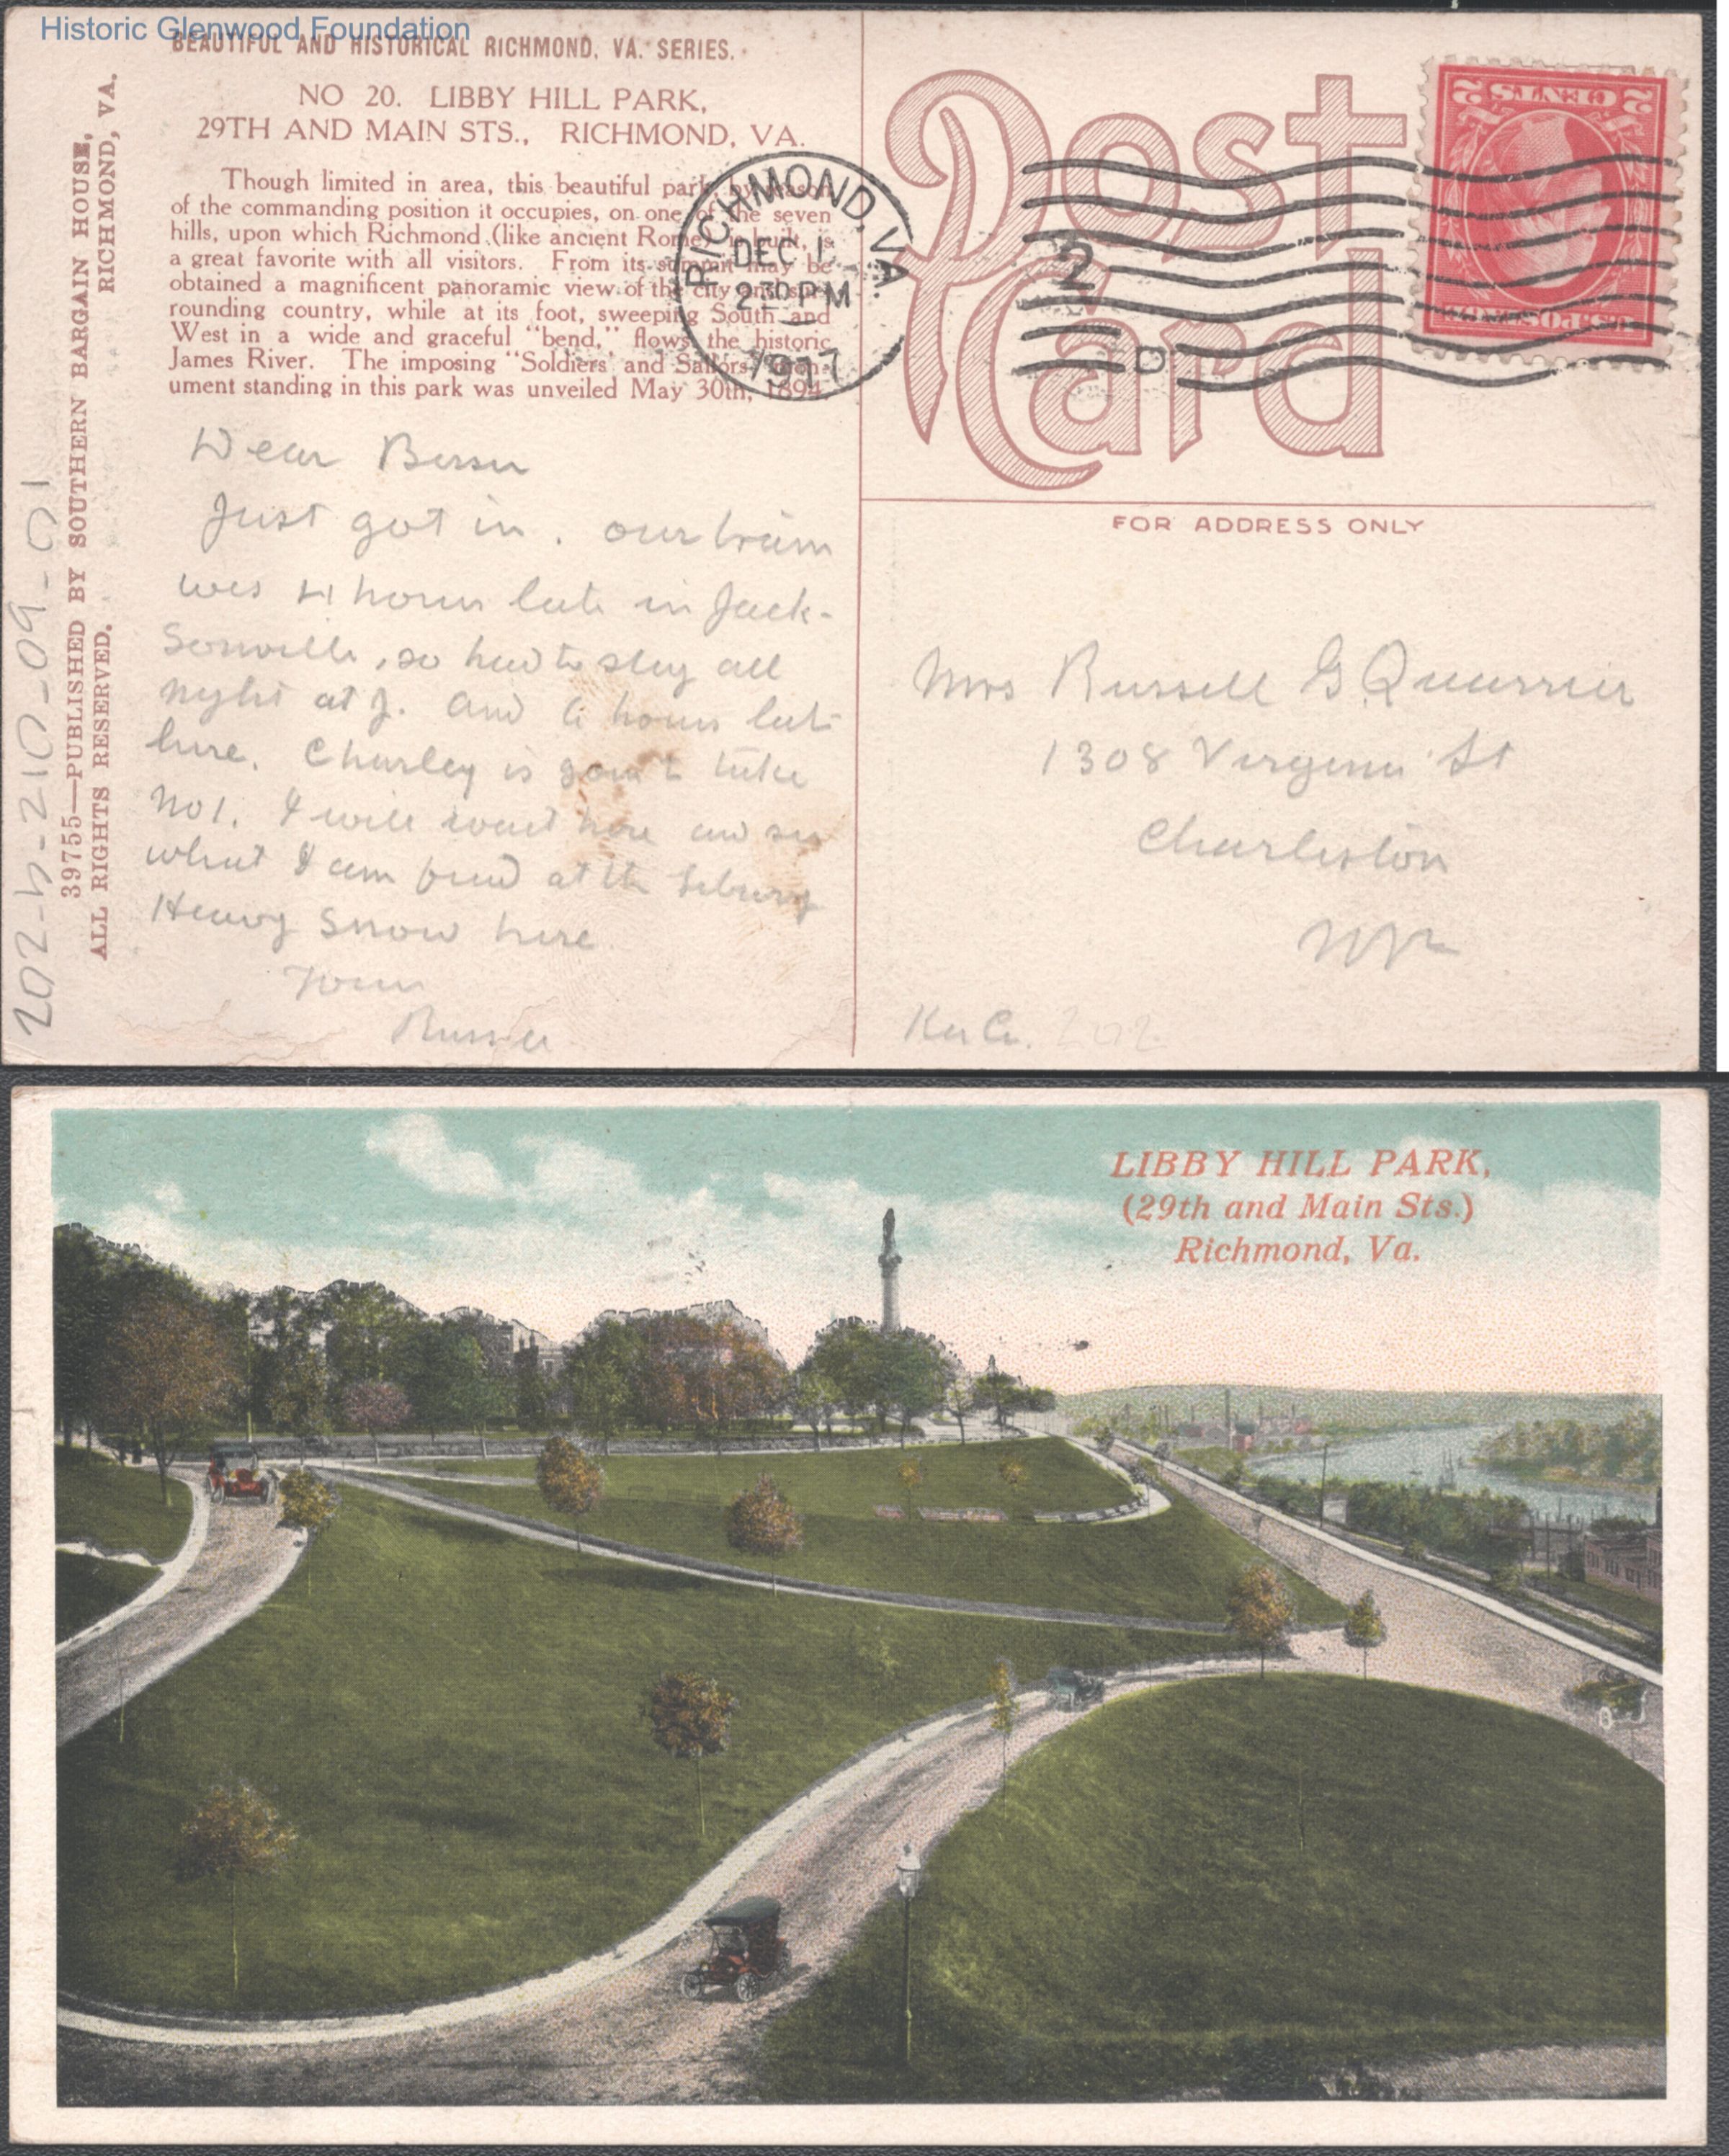 Historic Glenwood Foundation
BEAUTIFUL AND HISTORICAL RICHMOND, VA. SERIES.
NO 20. LIBBY HILL PARK,
29TH AND MAIN STS., RICHMOND, VA.
Though limited in area, this beautiful park, by reason
of the commanding position it occupies, on one of the seven
hills, upon which Richmond (like ancient Rome) is built, is
a great favorite with all visitors. From its summit may be
obtained a magnificent panoramic view of the city and sur-
rounding country, while at its foot, sweeping South and
West in a wide and graceful "bend," flows the historic
James River. The imposing "Soldiers' and Sailors' Mon-
ument standing in this park was unveiled May 30th, 1894.
39755—PUBLISHED BY SOUTHERN BARGAIN HOUSE,
RICHMOND, VA.
ALL RIGHTS RESERVED.
202-h-210-09-01
Dear Bessie
Just got in. our train
was 4 hours late in Jack-
sonville, so had to stay all
night at J. and 6 hours late
here. Charley is to take
No 1. I will wait here and see
what I can find at the
Heavy snow here
Yours
Russell
Post Card
RICHMOND, VA.
DEC 1
230 PM
1917
2
D
U.S. POSTAGE
2 CENTS 2
FOR ADDRESS ONLY
Mrs Russell G. Quarrier
1308 Virginia St
Charleston
W Va
202
LIBBY HILL PARK,
(29th and Main Sts.)
Richmond, Va.